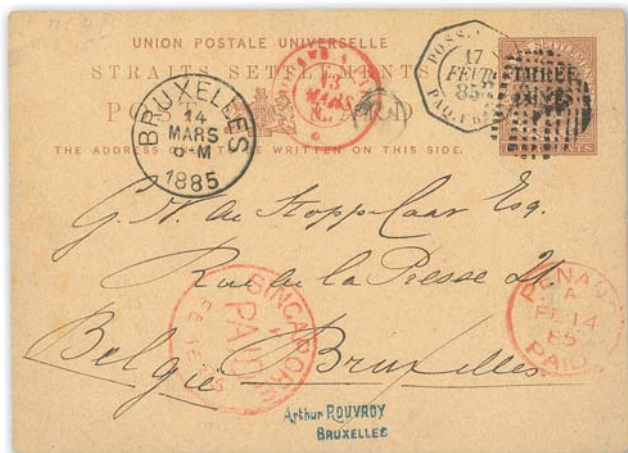 UNION POSTALE UNIVERSELLE
STRAITS SETTLEMENTS
POST CARD
THE ADDRESS ONLY TO BE WRITTEN ON THIS SIDE.
BRUXELLES
14
MARS
M
1885
13
MARS
17
FEVR
85
PAQ. FR
THREE
CENTS
G. H. de Stopp-Caar Esq.
Rue de la Presse 21.
Belgie Bruxelles
SINGAPORE
PAID
FE 16
PENANG
A
FE 14
85
PAID
Arthur ROUVROY
BRUXELLES